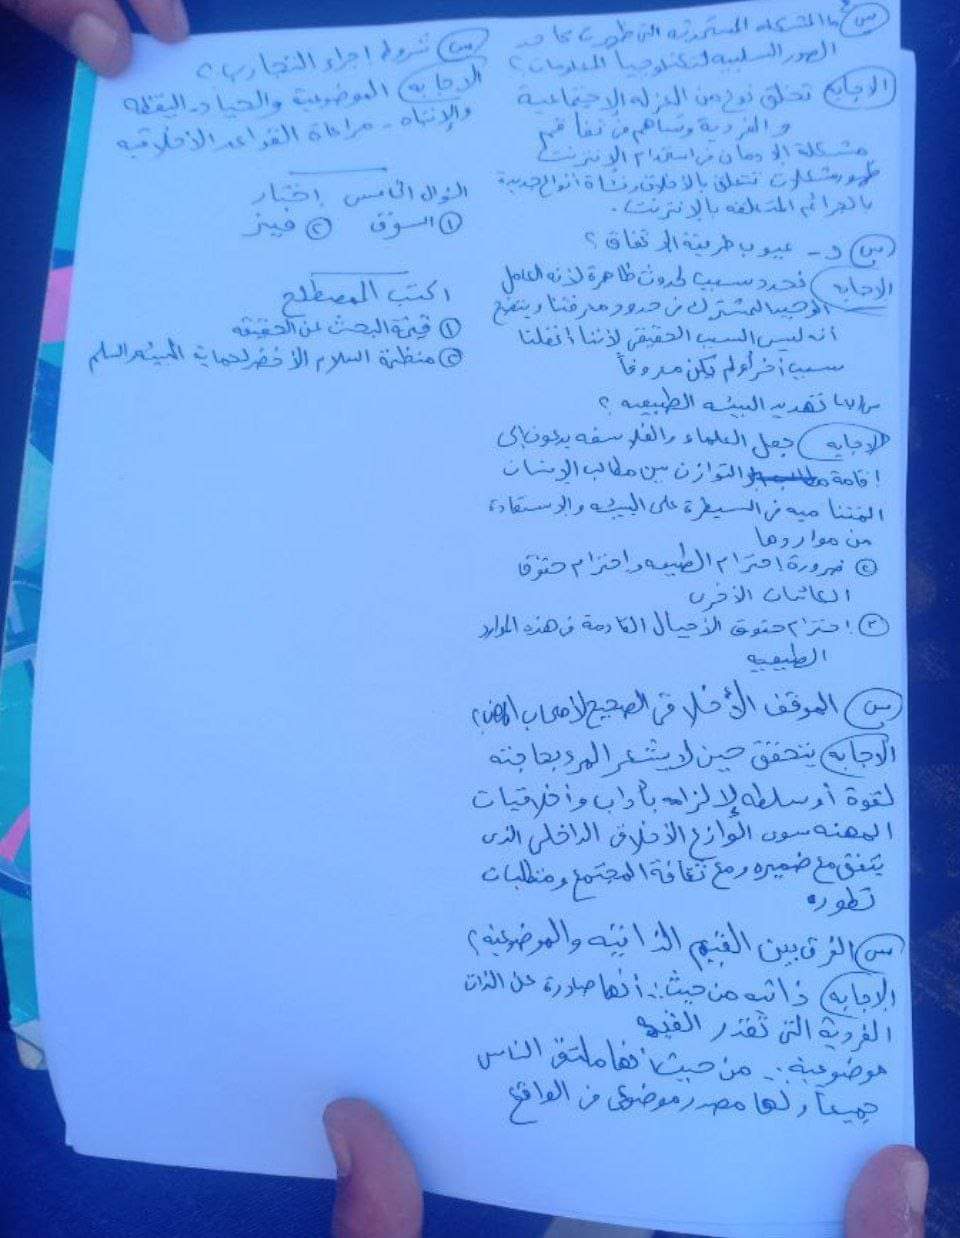 س ما المشكله المستحدثه التى ظهرت كأحد
الصور السلبيه لتكنولوجيا المعلومات؟
الاجابه تخلق نوع من العزله الاجتماعية
والفردية وتساهم فى تفاقم
مشكلة الادمان فى استخدام الإنترنت
ظهور مشكلات تتعلق بالأخلاق ونشأة انواع جديدة
بالجرائم المتعلقه بالإنترنت.
س د - عيوب طريقة الاتفاق؟
الاجابه نحدد سبب لحدوث ظاهرة لأنه العامل
الوحيد المشترك فى حدود معرفتنا ويتضح
أنه ليس السبب الحقيقى لأننا أغفلنا
سبب آخر أو لم يكن معروفاً
تهديد البيئه الطبيعيه ؟
الاجابه جعل العلماء والفلاسفه يدعون إلى
إقامة التوازن بين مطالب الإنسان
المتناميه فى السيطرة على البيئه والاستفادة
من مواردها
② ضرورة إحترام الطبيعه وإحترام حقوق
الكائنات الأخرى
③ احترام حقوق الأجيال القادمة فى هذه الموارد
الطبيعيه
س الموقف الأخلاقى الصحيح لأصحاب المهن؟
الاجابه يتحقق حين لا يشعر المرء بحاجته
لقوة أو سلطه لإلزامه بآداب وأخلاقيات
المهنه سوى الوازع الأخلاقى الداخلى الذى
يتفق مع ضميره ومع ثقافة المجتمع ومتطلبات
تطوره
س الفرق بين القيم الذاتيه والموضوعيه؟
الاجابه ذاتيه من حيث: أنها صادرة عن الذات
الفردية التى تقدر القيمه
موضوعيه: من حيث أنها ملتقى الناس
جميعاً ولها مصدر موضوعى فى الواقع
س شروط اجراء التجارب؟
الاجابه الموضوعية والحياد - اليقظه
والإنتباه - مراعاة القواعد الأخلاقيه
السؤال الخامس إختار
① السوق ② فيتز
اكتب المصطلح
① قيمة البحث عن الحقيقه
② منظمة السلام الأخضر لحماية البيئه والسلم